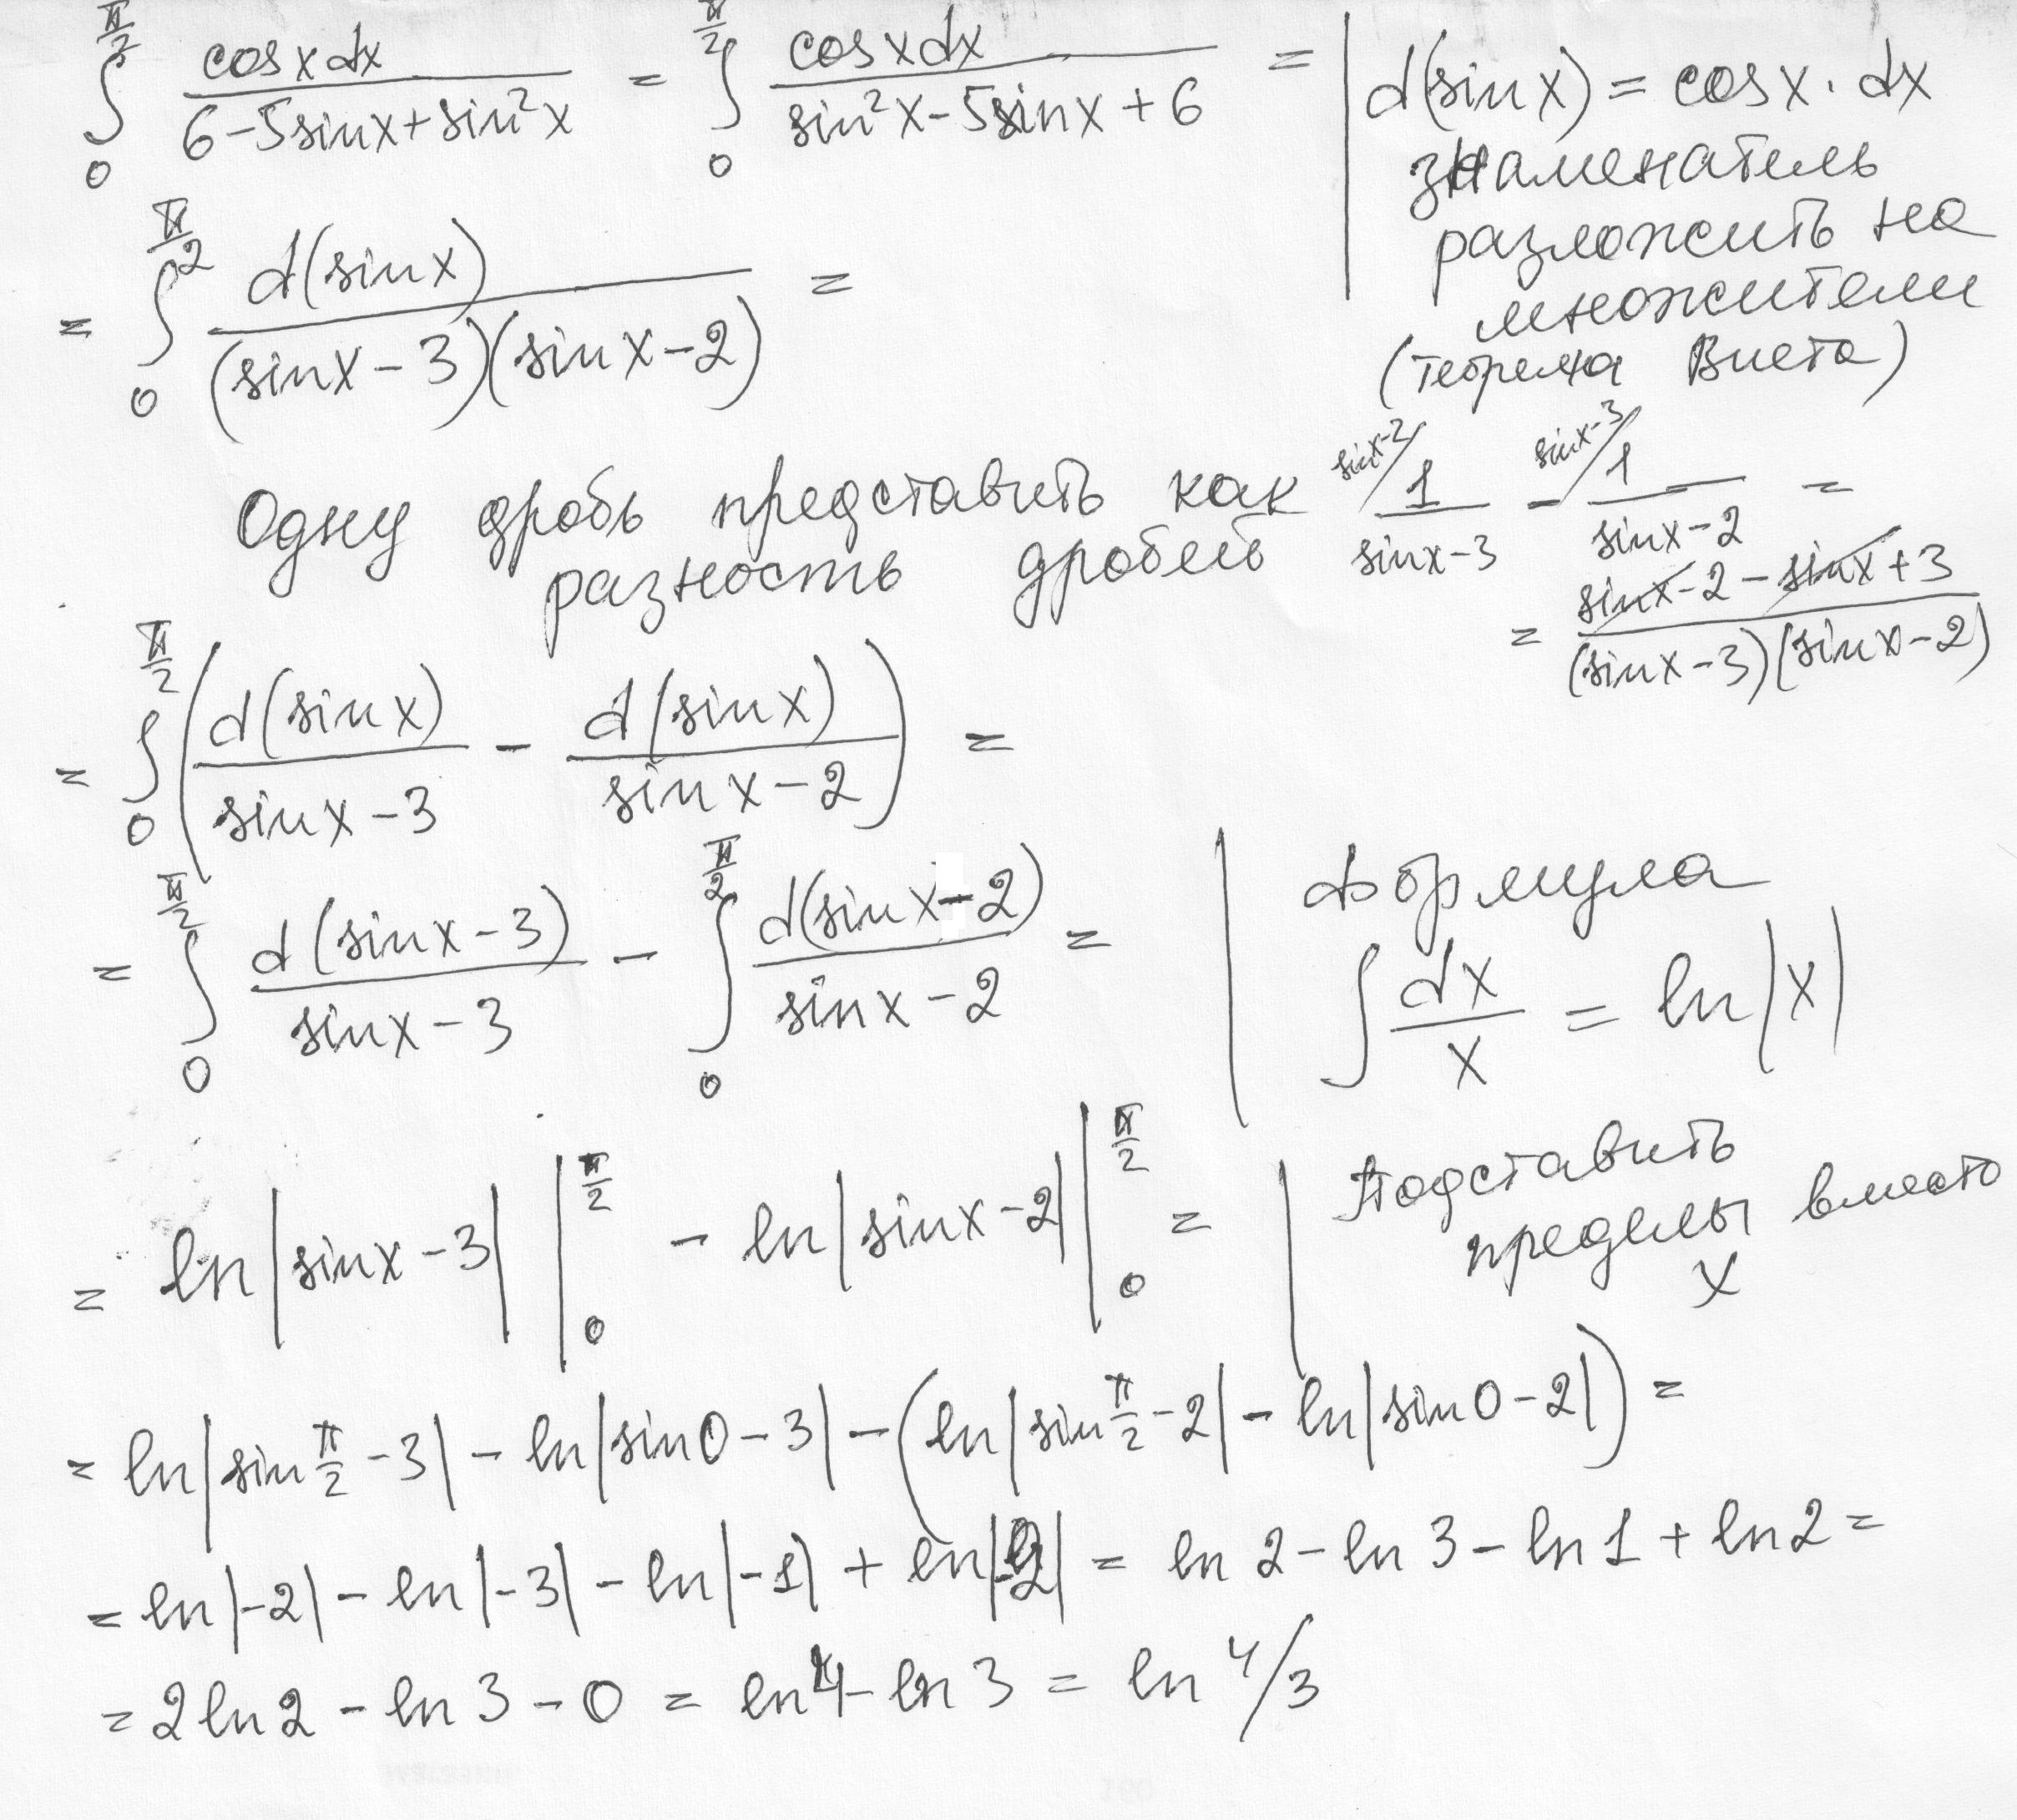 ∫₀^{π/2} cosx dx / (6-5sinx+sin²x) = ∫₀^{π/2} cosx dx / (sin²x-5sinx+6) = | d(sinx) = cosx · dx
знаменатель
разложить на
множители
(теорема Виета)
= ∫₀^{π/2} d(sinx) / ((sinx-3)(sinx-2)) =
Одну дробь представить как
разность дробей
sinx-2/ 1/(sinx-3) - sinx-3/ 1/(sinx-2) =
= (sinx-2-sinx+3) / ((sinx-3)(sinx-2))
= ∫₀^{π/2} ( d(sinx)/(sinx-3) - d(sinx)/(sinx-2) ) =
= ∫₀^{π/2} d(sinx-3)/(sinx-3) - ∫₀^{π/2} d(sinx-2)/(sinx-2) =
Формула
∫ dx/x = ln|x|
= ln|sinx-3| |₀^{π/2} - ln|sinx-2| |₀^{π/2} =
Подставить
пределы вместо
x
= ln|sin π/2 -3| - ln|sin0-3| - (ln|sin π/2 -2| - ln|sin0-2|) =
= ln|-2| - ln|-3| - ln|-1| + ln|-2| = ln2 - ln3 - ln1 + ln2 =
= 2ln2 - ln3 - 0 = ln4 - ln3 = ln 4/3